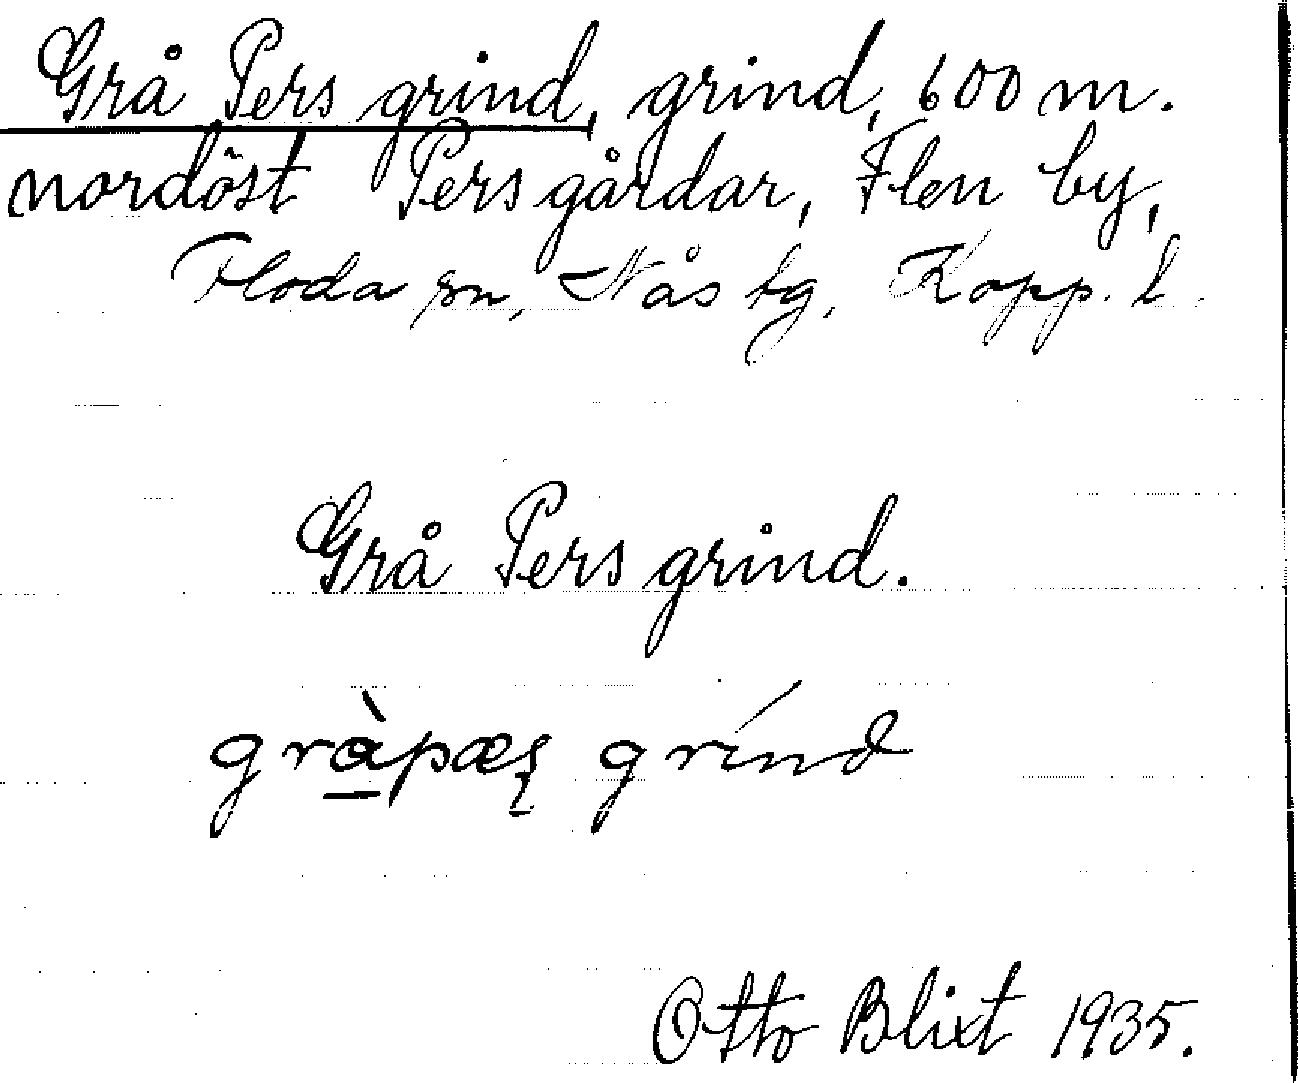 Grå Pers grind, grind, 600 m.
nordöst Persgårdar, Flen by,
Floda sn, Nås tg, Kopp. l.
Grå Pers grind.
gràpæʂ grínd
Otto Blixt 1935.